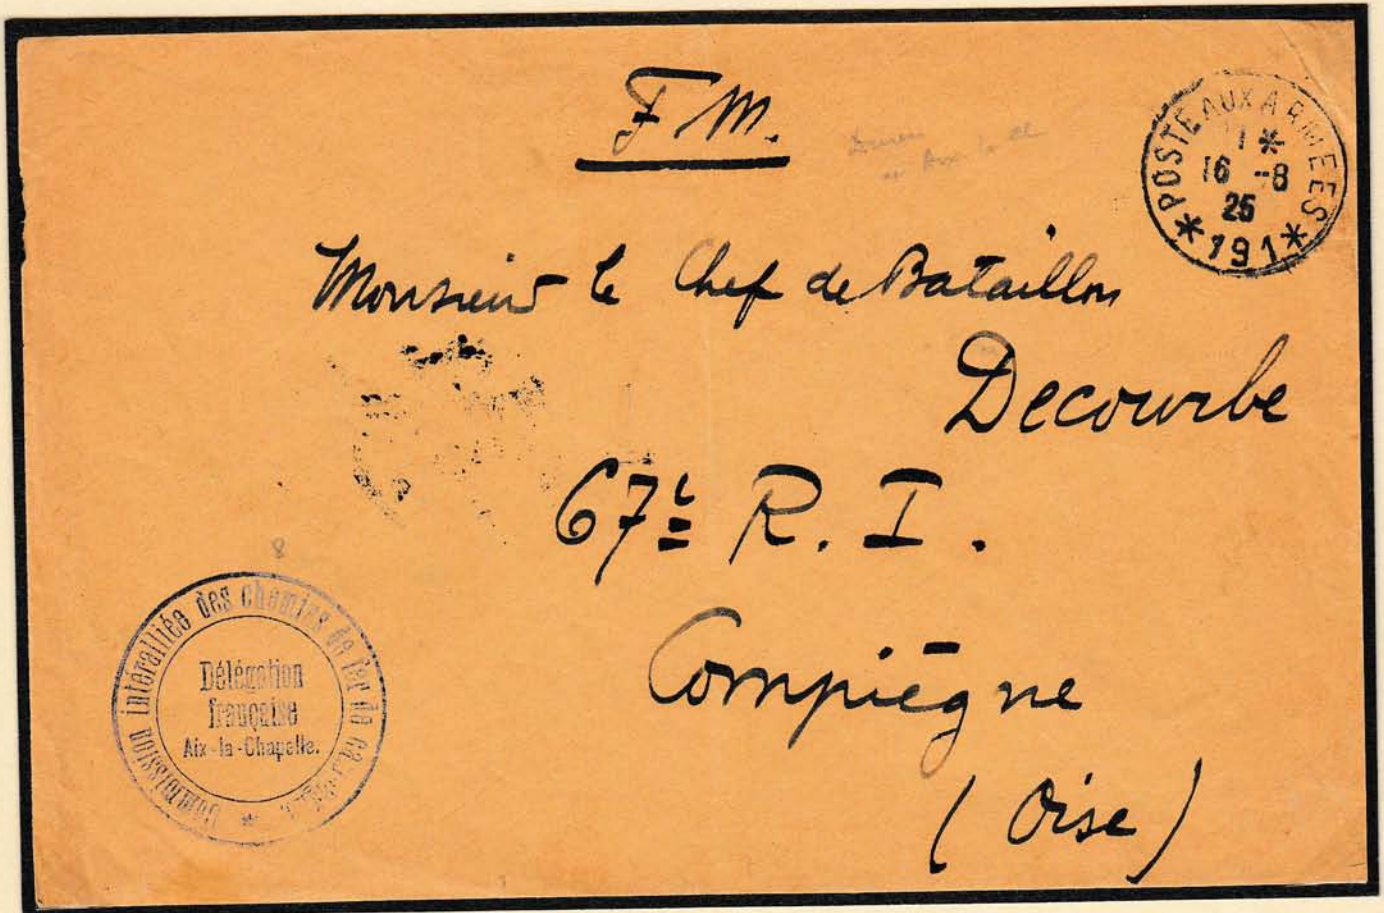 F M.
POSTE AUX ARMEES
16 -8
25
*191*
Monsieur le Chef de Bataillon
Decourbe
67e R. I.
Compiègne
(Oise)
8
Commission interalliée des chemins de fer de
Délégation
française
Aix-la-Chapelle.